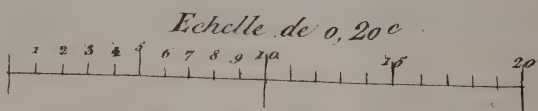 Echelle de 0,20c
1 2 3 4 5 6 7 8 9 10 15 20